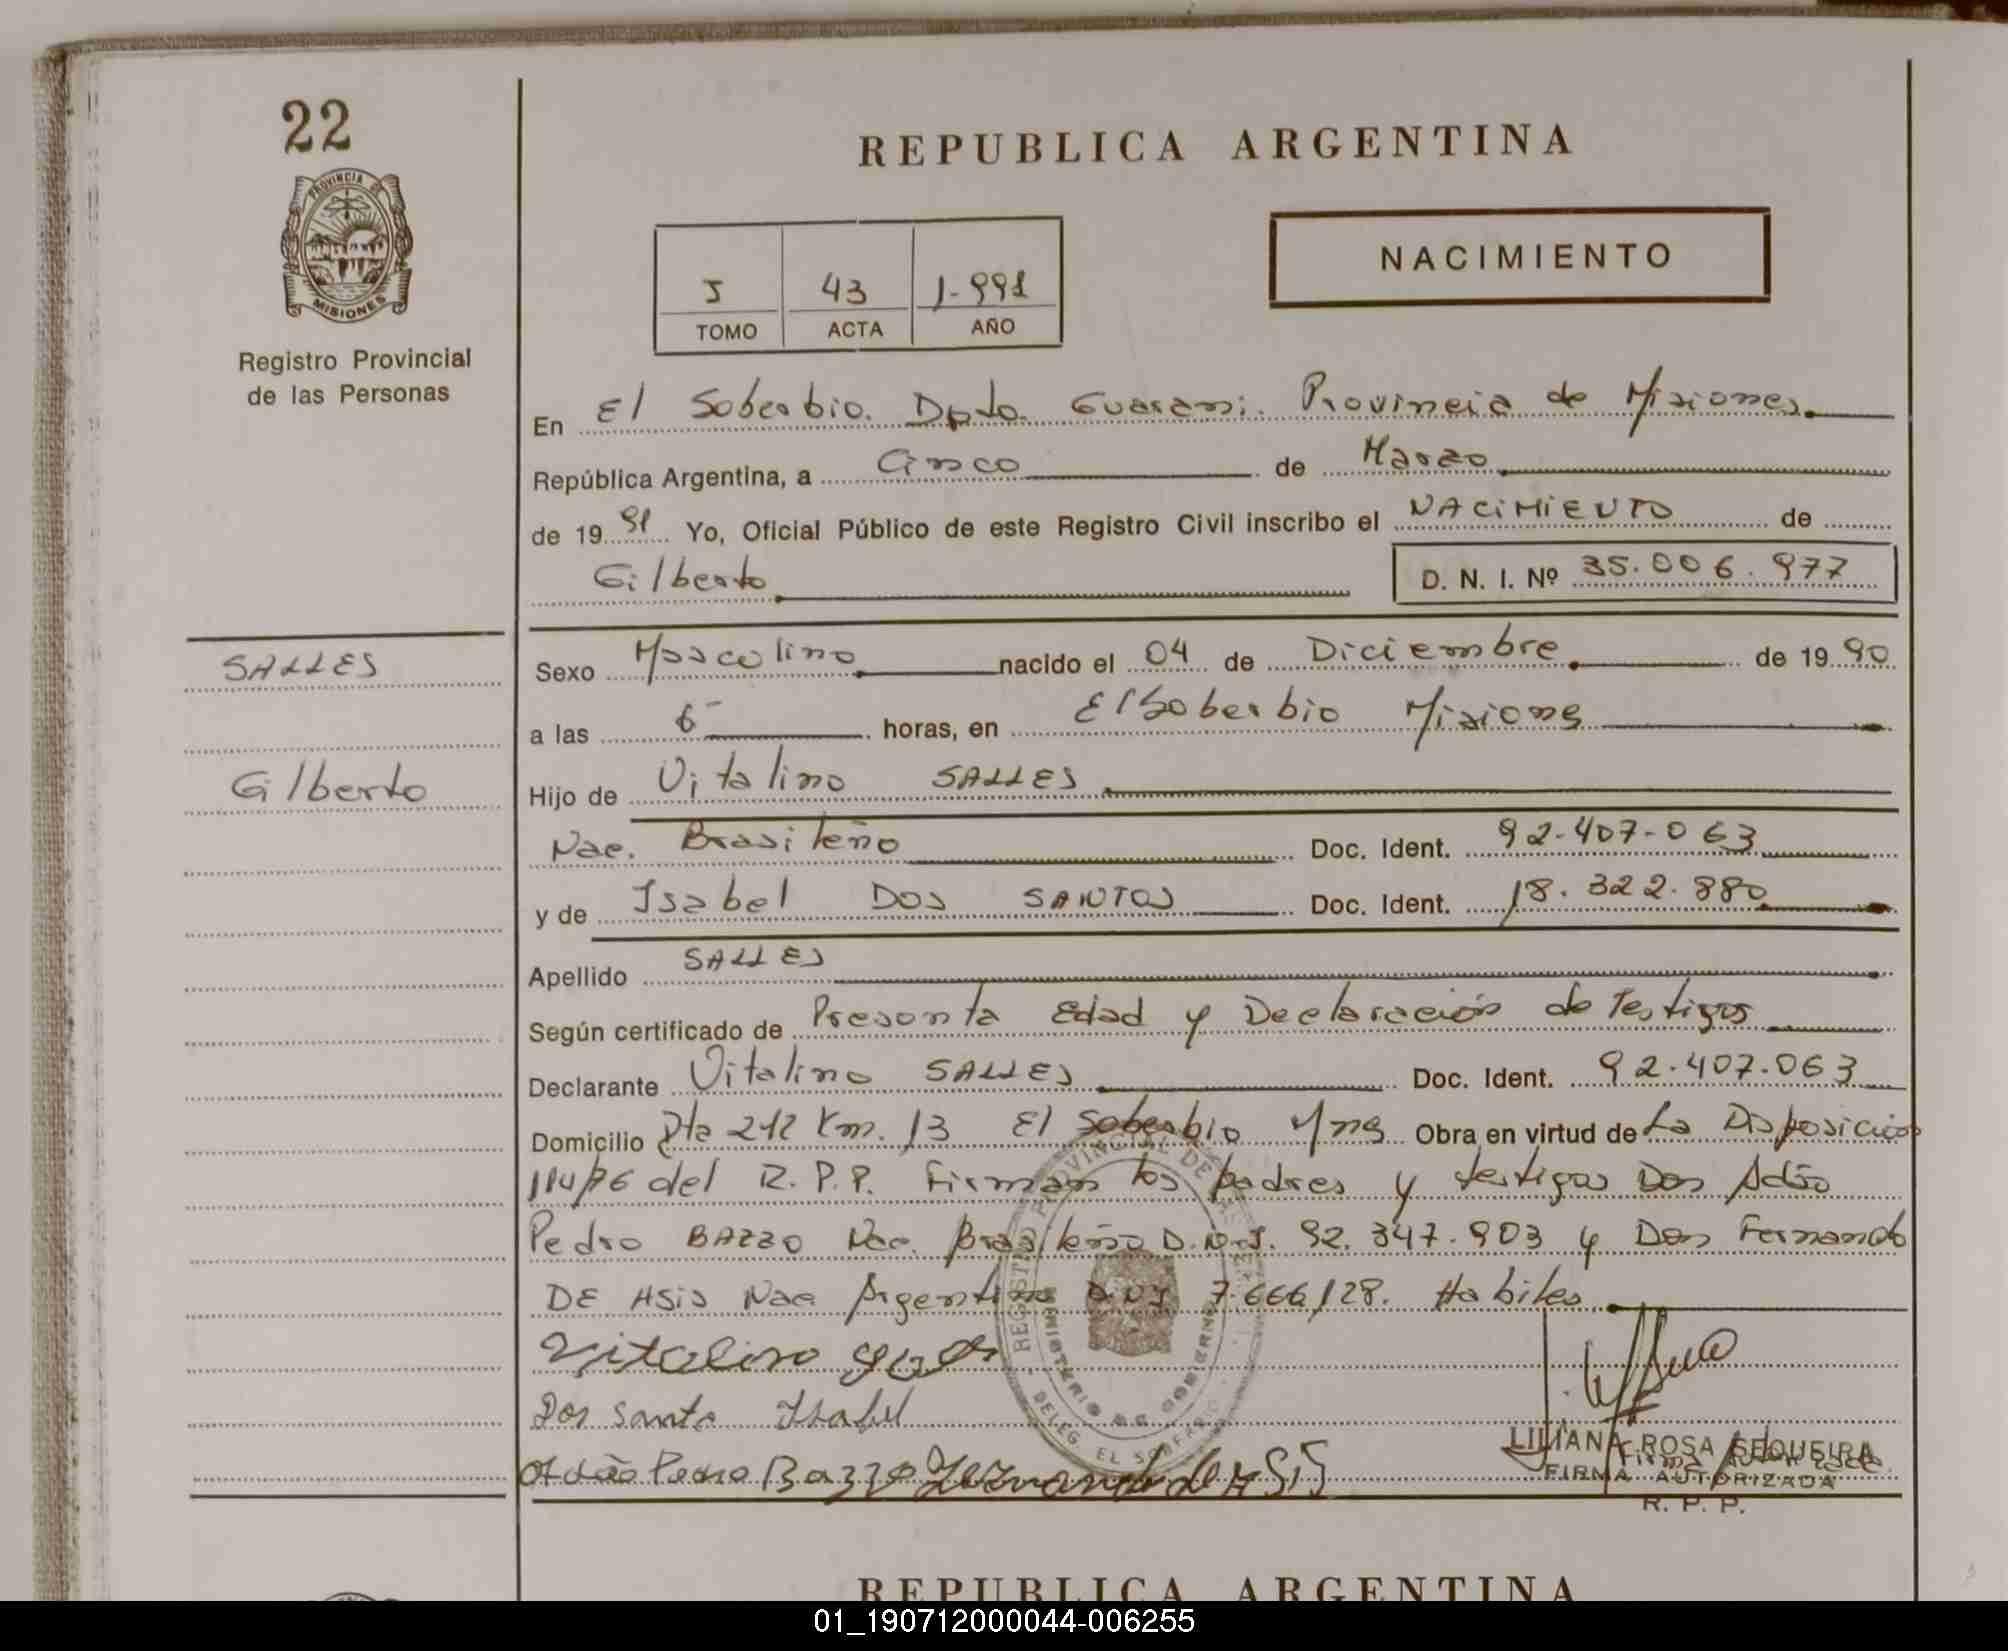 22
PROVINCIA DE
MISIONES
Registro Provincial
de las Personas
REPUBLICA ARGENTINA
NACIMIENTO
J 43 1-991
TOMO ACTA AÑO
En El Soberbio. Dpto. Guarani. Provincia de Misiones.
República Argentina, a Cinco de Marzo
de 19 91 Yo, Oficial Público de este Registro Civil inscribo el NACIMIENTO de
Gilberto D. N. I. Nº 35.006.977
SALLES
Gilberto
Sexo Masculino nacido el 04 de Diciembre de 19 90
a las 6 horas, en El Soberbio Misiones
Hijo de Vitalino SALLES
Nac. Brasileño Doc. Ident. 92-407-063
y de Isabel DOS SANTOS Doc. Ident. 18.322.880
Apellido SALLES
Según certificado de Presonta Edad y Declaración de Testigos
Declarante Vitalino SALLES Doc. Ident. 92.407.063
Domicilio Km. 13 El Soberbio Mns Obra en virtud de La Disposición
114/76 del R.P.P. Firman los padres y testigos Don Adão
Pedro BAZZO Nac. Brasileño D.N.I. 92.347.903 y Don Fernando
DE ASIS Nac Argentino D.N.I 7.666.128. Habiles
Vitalino
Dos Santo Isabel
Adão Pedro Bazzo Fernando de ASIS
REGISTRO PROVINCIAL DE LAS
MINISTERIO DE GOBIERNO
DELEG. EL SOBERBIO
LILIANA ROSA SEQUEIRA
FIRMA AUTORIZADA
R. P. P.
REPUBLICA ARGENTINA
01_190712000044-006255